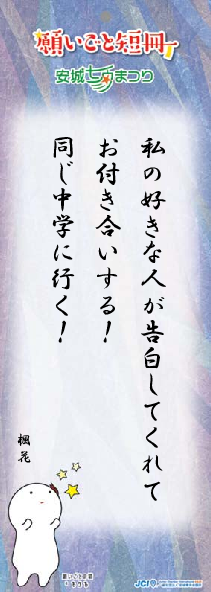 願いごと短冊
安城七夕まつり
私の好きな人が告白してくれて
お付き合いする！
同じ中学に行く！
楓花
JCI